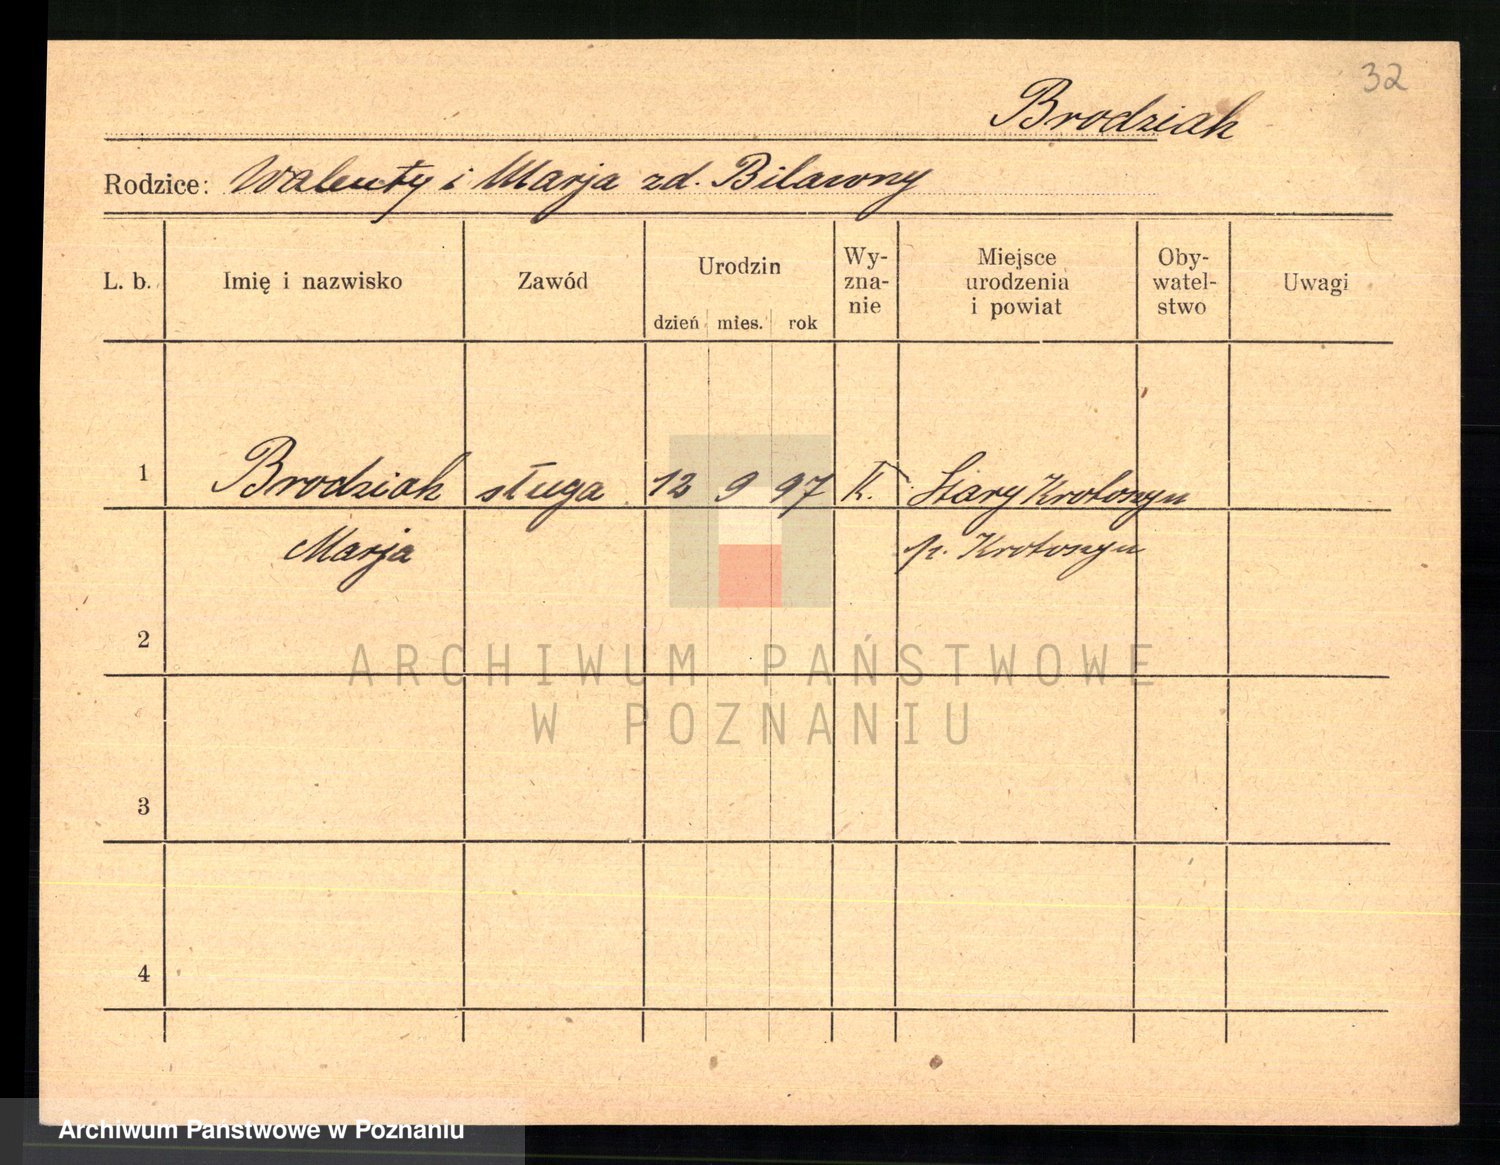 32
Brodziak
Rodzice: Walenty i Marja zd. Bilawny
L. b. Imię i nazwisko Zawód Urodzin dzień mies. rok Wy-zna-nie Miejsce urodzenia i powiat Oby-watel-stwo Uwagi
1 Brodziak sługa 12 9 97 K. Stary Krotoszyn
Marja p. Krotoszyn
2
3
4
ARCHIWUM PAŃSTWOWE
W POZNANIU
Archiwum Państwowe w Poznaniu